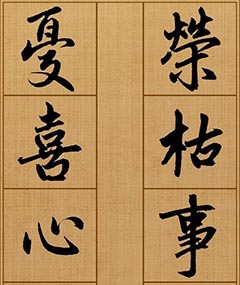 榮枯事
憂喜心